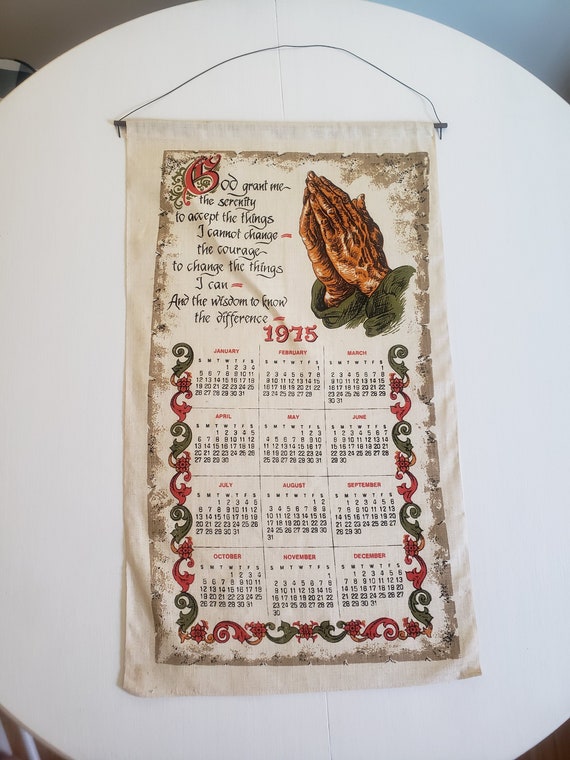 God grant me
the serenity
to accept the things
I cannot change =
the courage
to change the things
I can =
And the wisdom to know
the difference =
1975
JANUARY
S M T W T F S
1 2 3 4
5 6 7 8 9 10 11
12 13 14 15 16 17 18
19 20 21 22 23 24 25
26 27 28 29 30 31
FEBRUARY
S M T W T F S
1
2 3 4 5 6 7 8
9 10 11 12 13 14 15
16 17 18 19 20 21 22
23 24 25 26 27 28
MARCH
S M T W T F S
1
2 3 4 5 6 7 8
9 10 11 12 13 14 15
16 17 18 19 20 21 22
23 24 25 26 27 28 29
30 31
APRIL
S M T W T F S
1 2 3 4 5
6 7 8 9 10 11 12
13 14 15 16 17 18 19
20 21 22 23 24 25 26
27 28 29 30
MAY
S M T W T F S
1 2 3
4 5 6 7 8 9 10
11 12 13 14 15 16 17
18 19 20 21 22 23 24
25 26 27 28 29 30 31
JUNE
S M T W T F S
1 2 3 4 5 6 7
8 9 10 11 12 13 14
15 16 17 18 19 20 21
22 23 24 25 26 27 28
29 30
JULY
S M T W T F S
1 2 3 4 5
6 7 8 9 10 11 12
13 14 15 16 17 18 19
20 21 22 23 24 25 26
27 28 29 30 31
AUGUST
S M T W T F S
1 2
3 4 5 6 7 8 9
10 11 12 13 14 15 16
17 18 19 20 21 22 23
24 25 26 27 28 29 30
31
SEPTEMBER
S M T W T F S
1 2 3 4 5 6
7 8 9 10 11 12 13
14 15 16 17 18 19 20
21 22 23 24 25 26 27
28 29 30
OCTOBER
S M T W T F S
1 2 3 4
5 6 7 8 9 10 11
12 13 14 15 16 17 18
19 20 21 22 23 24 25
26 27 28 29 30 31
NOVEMBER
S M T W T F S
1
2 3 4 5 6 7 8
9 10 11 12 13 14 15
16 17 18 19 20 21 22
23 24 25 26 27 28 29
30
DECEMBER
S M T W T F S
1 2 3 4 5 6
7 8 9 10 11 12 13
14 15 16 17 18 19 20
21 22 23 24 25 26 27
28 29 30 31